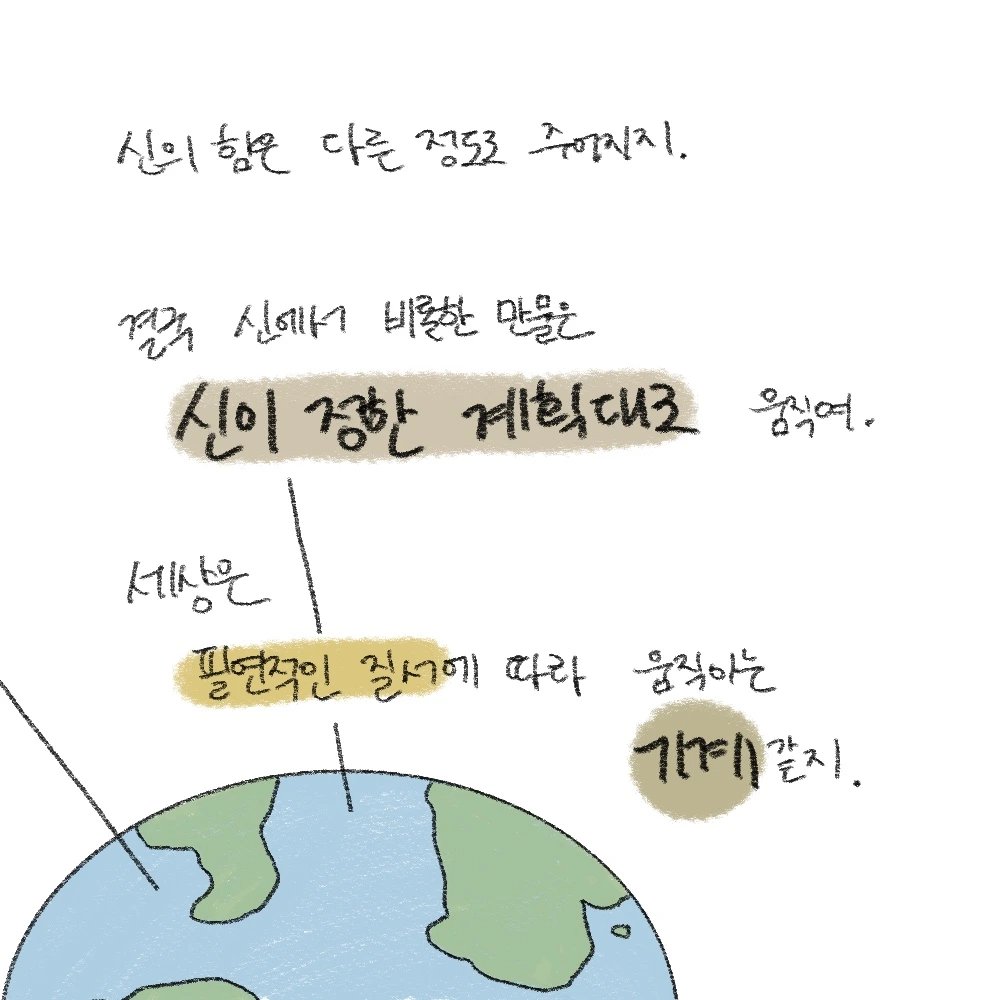 신의 힘은 다른 정도로 주어지지.
결국 신에서 비롯한 만물은
신이 정한 계획대로 움직여.
세상은
필연적인 질서에 따라 움직이는
기계 같지.